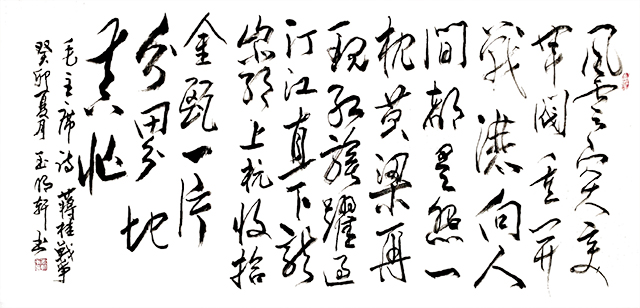 风云突变
军阀重开
战洒向人
间都是怨一
枕黄粱再
现红旗跃过
汀江直下龙
岩上杭收拾
金瓯一片
分田分地
真忙
毛主席诗 蒋桂战争
癸卯夏月 玉明轩书